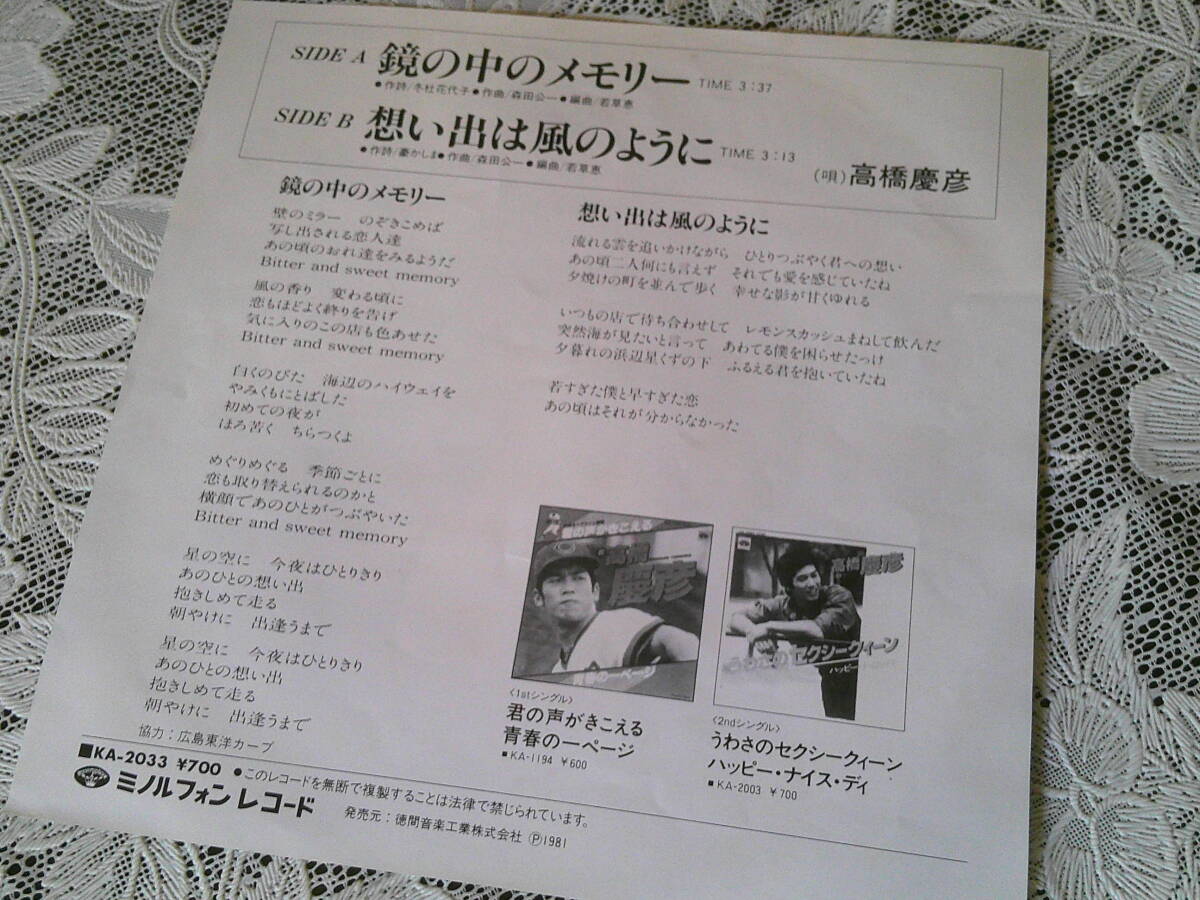 SIDE A 鏡の中のメモリー TIME 3:37
●作詩/冬杜花代子●作曲/森田公一●編曲/若草恵
SIDE B 想い出は風のように TIME 3:13
●作詩/豪かしま●作曲/森田公一●編曲/若草恵
(唄)高橋慶彦
鏡の中のメモリー
壁のミラー のぞきこめば
写し出される恋人達
あの頃のおれ達をみるようだ
Bitter and sweet memory
風の香り 変わる頃に
恋もほどよく終りを告げ
気に入りのこの店も色あせた
Bitter and sweet memory
白くのびた 海辺のハイウェイを
やみくもにとばした
初めての夜が
ほろ苦く ちらつくよ
めぐりめぐる 季節ごとに
恋も取り替えられるのかと
横顔であのひとがつぶやいた
Bitter and sweet memory
星の空に 今夜はひとりきり
あのひとの想い出
抱きしめて走る
朝やけに 出逢うまで
星の空に 今夜はひとりきり
あのひとの想い出
抱きしめて走る
朝やけに 出逢うまで
協力:広島東洋カープ
想い出は風のように
流れる雲を追いかけながら ひとりつぶやく君への想い
あの頃二人何にも言えず それでも愛を感じていたね
夕焼けの町を並んで歩く 幸せな影が甘くゆれる
いつもの店で待ち合わせして レモンスカッシュまねして飲んだ
突然海が見たいと言って あわてる僕を困らせたっけ
夕暮れの浜辺星くずの下 ふるえる君を抱いていたね
若すぎた僕と早すぎた恋
あの頃はそれが分からなかった
君の声がきこえる
高橋
慶彦
青春の一ページ
高橋慶彦
うわさのセクシークィーン
〈1stシングル〉
君の声がきこえる
青春の一ページ
■KA-1194 ¥600
〈2ndシングル〉
うわさのセクシークィーン
ハッピー・ナイス・ディ
■KA-2003 ¥700
■KA-2033 ¥700 ●このレコードを無断で複製することは法律で禁じられています。
ミノルフォンレコード 発売元:徳間音楽工業株式会社 Ⓟ1981